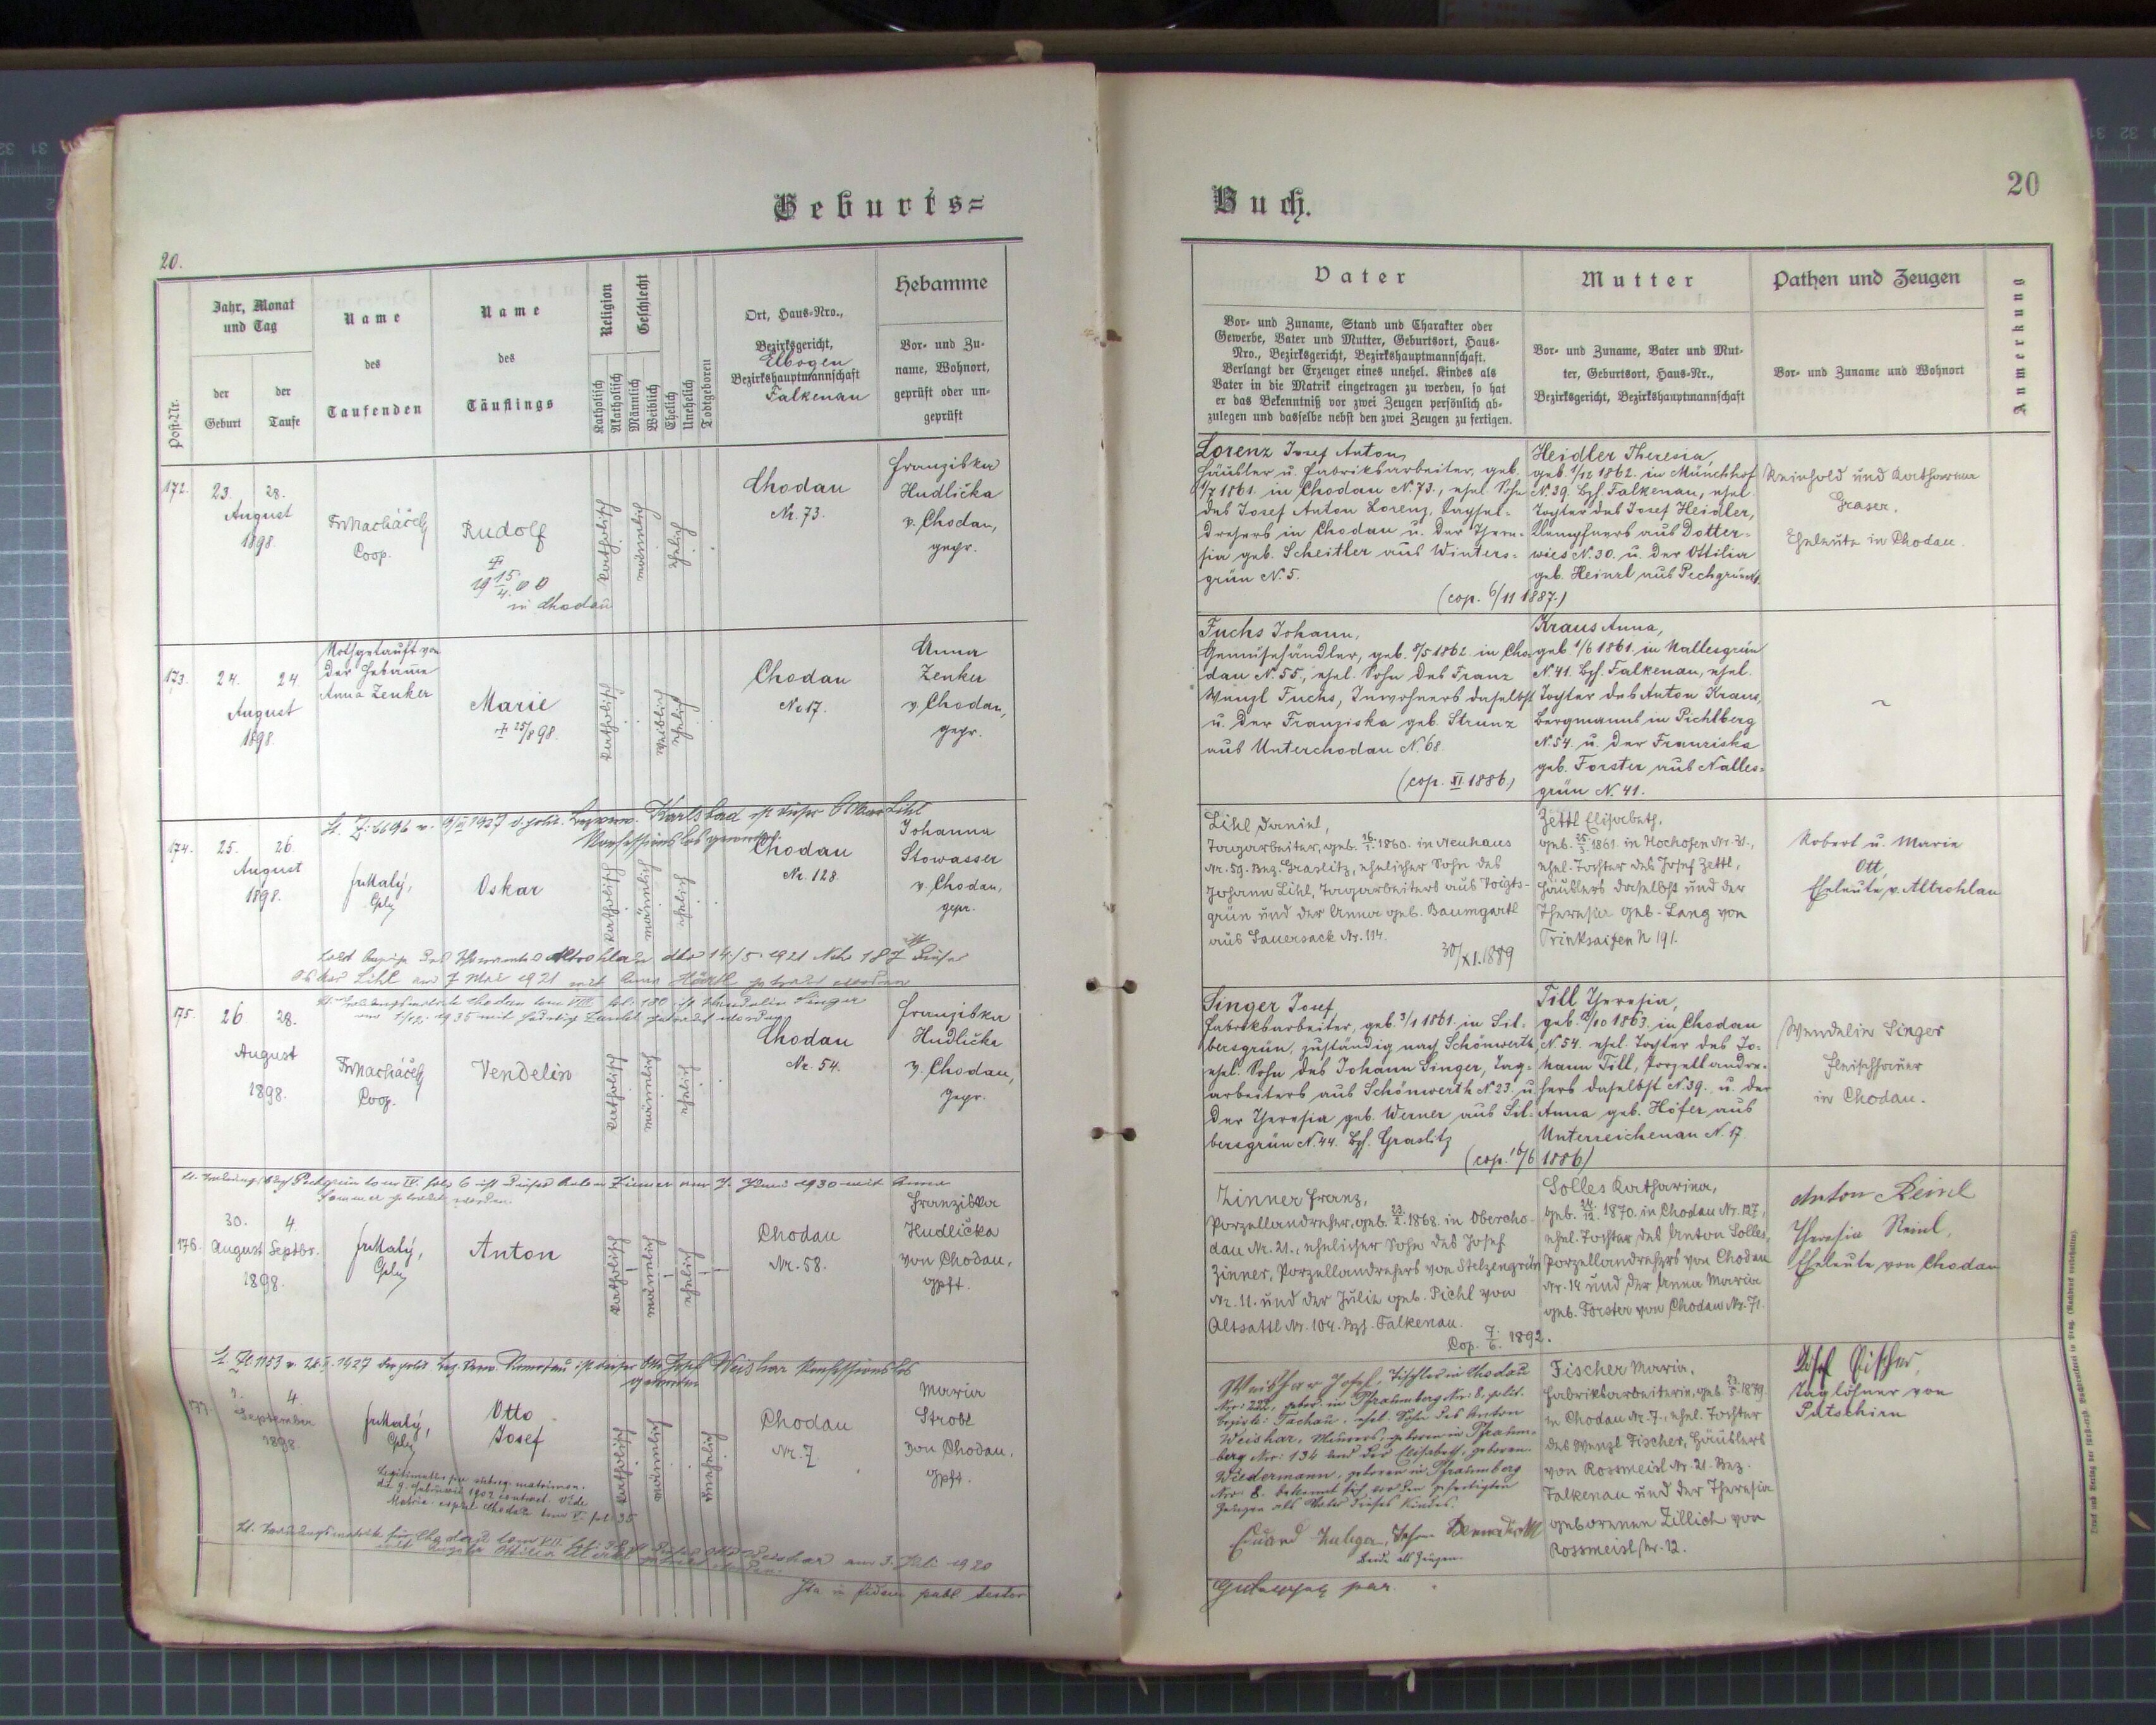 Geburts=
20.
Post-Nr.
Jahr, Monat
und Tag
der
Geburt
der
Taufe
Name
des
Taufenden
Name
des
Täuflings
Religion
Katholisch
Akatholisch
Geschlecht
Männlich
Weiblich
Ehelich
Unehelich
Todtgeboren
Ort, Haus-Nro.,
Bezirksgericht,
Elbogen
Bezirkshauptmannschaft
Falkenau
Hebamme
Vor- und Zu-
name, Wohnort,
geprüft oder un-
geprüft
172.
23. 28.
August
1898.
Coop.
Rudolf
in Chodau
katholisch
männlich
ehelich
Chodau
Nr. 73.
Franziska
Hudlička
v. Chodau,
gepr.
173.
24. 24
August
1898.
Nothgetauft von
der Hebame
Anna Zenker
Marie
† 25/8 98.
katholisch
weiblich
ehelich
Chodau
No 17.
Anna
Zenker
v. Chodau,
gepr.
Karlsbad ist dieser Oskar Lihl
174.
25. 26.
August
1898.
Oskar
katholisch
männlich
ehelich
Chodau
Nr. 128.
Johanna
Stowasser
v. Chodau,
gepr.
Altrohlau dto 14/5 1921 dieser
Oskar Lihl am 7 Mai 1921 mit getraut worden
175.
26 28.
August
1898.
Coop.
Vendelin
katholisch
männlich
ehelich
Chodau
Nr. 54.
Franziska
Hudlička
v. Chodau,
gepr.
ist dieser Anton Zinner am Juni 1930 mit Anna
getraut worden.
176.
30. 4.
August Septbr.
1898.
Anton
katholisch
männlich
ehelich
Chodau
Nr. 58.
Franziska
Hudlička
von Chodau,
gpft.
ist dieser Otto Josef Weishar konfessionslos
geworden
177.
4.
September
1898.
Otto
Josef
katholisch
männlich
unehelich
Chodau
Nr. 7.
Maria
Strobl
von Chodau,
gpft.
Otto Weishar am 3. Juli 1920
Ita in fidem publ. testor
Buch.
20
Vater
Vor- und Zuname, Stand und Charakter oder
Gewerbe, Vater und Mutter, Geburtsort, Haus-
Nro., Bezirksgericht, Bezirkshauptmannschaft.
Verlangt der Erzeuger eines unehel. Kindes als
Vater in die Matrik eingetragen zu werden, so hat
er das Bekenntniß vor zwei Zeugen persönlich ab-
zulegen und dasselbe nebst den zwei Zeugen zu fertigen.
Mutter
Vor- und Zuname, Vater und Mut-
ter, Geburtsort, Haus-Nr.,
Bezirksgericht, Bezirkshauptmannschaft
Pathen und Zeugen
Vor- und Zuname und Wohnort
Anmerkung
Lorenz Josef Anton,
Häusler u. Fabriksarbeiter, geb.
1/7 1861. in Chodau N. 73., ehel. Sohn
des Josef Anton Lorenz,
drehers in Chodau u. der There-
sia geb. Scheitler aus Winters-
grün N. 5.
(cop. 6/11 1887.)
Heidler Theresia,
geb. 1/12 1862. in Münchhof
N. 39. Bzh. Falkenau, ehel.
Tochter des Josef Heidler,
aus Dotter-
wies N. 30. u. der Ottilia
geb. Heinrl aus Pechgrün
Reinhold und Katharina
Graser.
Eheleute in Chodau.
Fuchs Johann,
Gemüsehändler, geb. 8/5 1862 in Cho-
dau N. 55., ehel. Sohn des Franz
Wenzl Fuchs, Inwohners daselbst
u. der Franziska geb. Strunz
aus Unterchodau N. 68.
(cop. XI 1886)
Kraus Anna,
geb. 1/6 1861. in Nallesgrün
N. 41. Bzh. Falkenau, ehel.
Tochter des Anton Kraus,
Bergmanns in Pichlberg
N. 54. u. der Franziska
geb. Forster aus Nalles-
grün N. 41.
~
Lihl Daniel,
Tagarbeiter, geb. 16/1. 1860. in Neuhaus
Nr. 59. Bez. Graslitz, ehelicher Sohn des
Johann Lihl, Tagarbeiters aus Voigts-
grün und der Anna geb. Baumgartl
aus Sauersack Nr. 114.
30/XI. 1889
Zettl Elisabeth,
geb. 25/3. 1861. in Hochofen Nr. 31.,
ehel. Tochter des Josef Zettl,
Häuslers daselbst und der
Theresia geb. Lang von
Trinksaifen N 191.
Robert u. Marie
Ott,
Eheleute v. Altrohlau
Singer Josef
Fabriksarbeiter, geb. 3/1 1861. in Sil-
bersgrün, zuständig nach Schönwerth,
ehel. Sohn des Johann Singer, Tag-
arbeiters aus Schönwerth N. 23. u.
der Theresia geb. Werner aus Sil-
bersgrün N. 44. Bzh. Graslitz
(cop. 16/6 1886)
Till Theresia,
1863. in Chodau
N. 54. ehel. Tochter des Jo-
hann Till, Porzellandre-
hers daselbst N. 39. u. der
Anna geb. Höfer aus
Unterreichenau N. 17.
Wendelin Singer
Fleischhauer
in Chodau.
Zinner Franz,
Porzellandreher, geb. 23/2. 1868. in Obercho-
dau Nr. 21., ehelicher Sohn des Josef
Zinner, Porzellandrehers von Stelzengrün
Nr. 11. und der Julie geb. Pichl von
Altsattl Nr. 104. Bzh. Falkenau.
Cop. 7/6. 1892.
Solles Katharina,
geb. 24/12. 1870. in Chodau Nr. 127,
ehel. Tochter des Anton Solles,
Porzellandrehers von Chodau
Nr. 14 und der Anna Maria
geb. Forster von Chodau Nr. 71.
Anton Reinl
Theresia Reinl,
Eheleute von Chodau
Weishar Josef, Tischler in Chodau
Nro: 222, gebor. in Pfraumberg Nro: 8, polit.
Bezirk: Tachau, ehel. Sohn des Anton
Weishar, Maurers, geboren in Pfraum-
berg Nro: 134 und der Elisabeth, geboren.
Wiedermann, geboren in Pfraumberg
Nro: 8. bekennt sich vor den gefertigten
Zeugen als Vater dieses Kindes.
Eduard
Beide als Zeugen.
Fischer Maria,
Fabriksarbeiterin, geb. 23/5. 1879.
in Chodau Nr. 7., ehel. Tochter
des Wenzl Fischer, Häuslers
von Rossmeisl Nr. 21. Bez.
Falkenau und der Theresia
geborenen Zillich von
Rossmeisl Nr. 12.
Josef Fischer,
Taglöhner von
Putschirn
par.